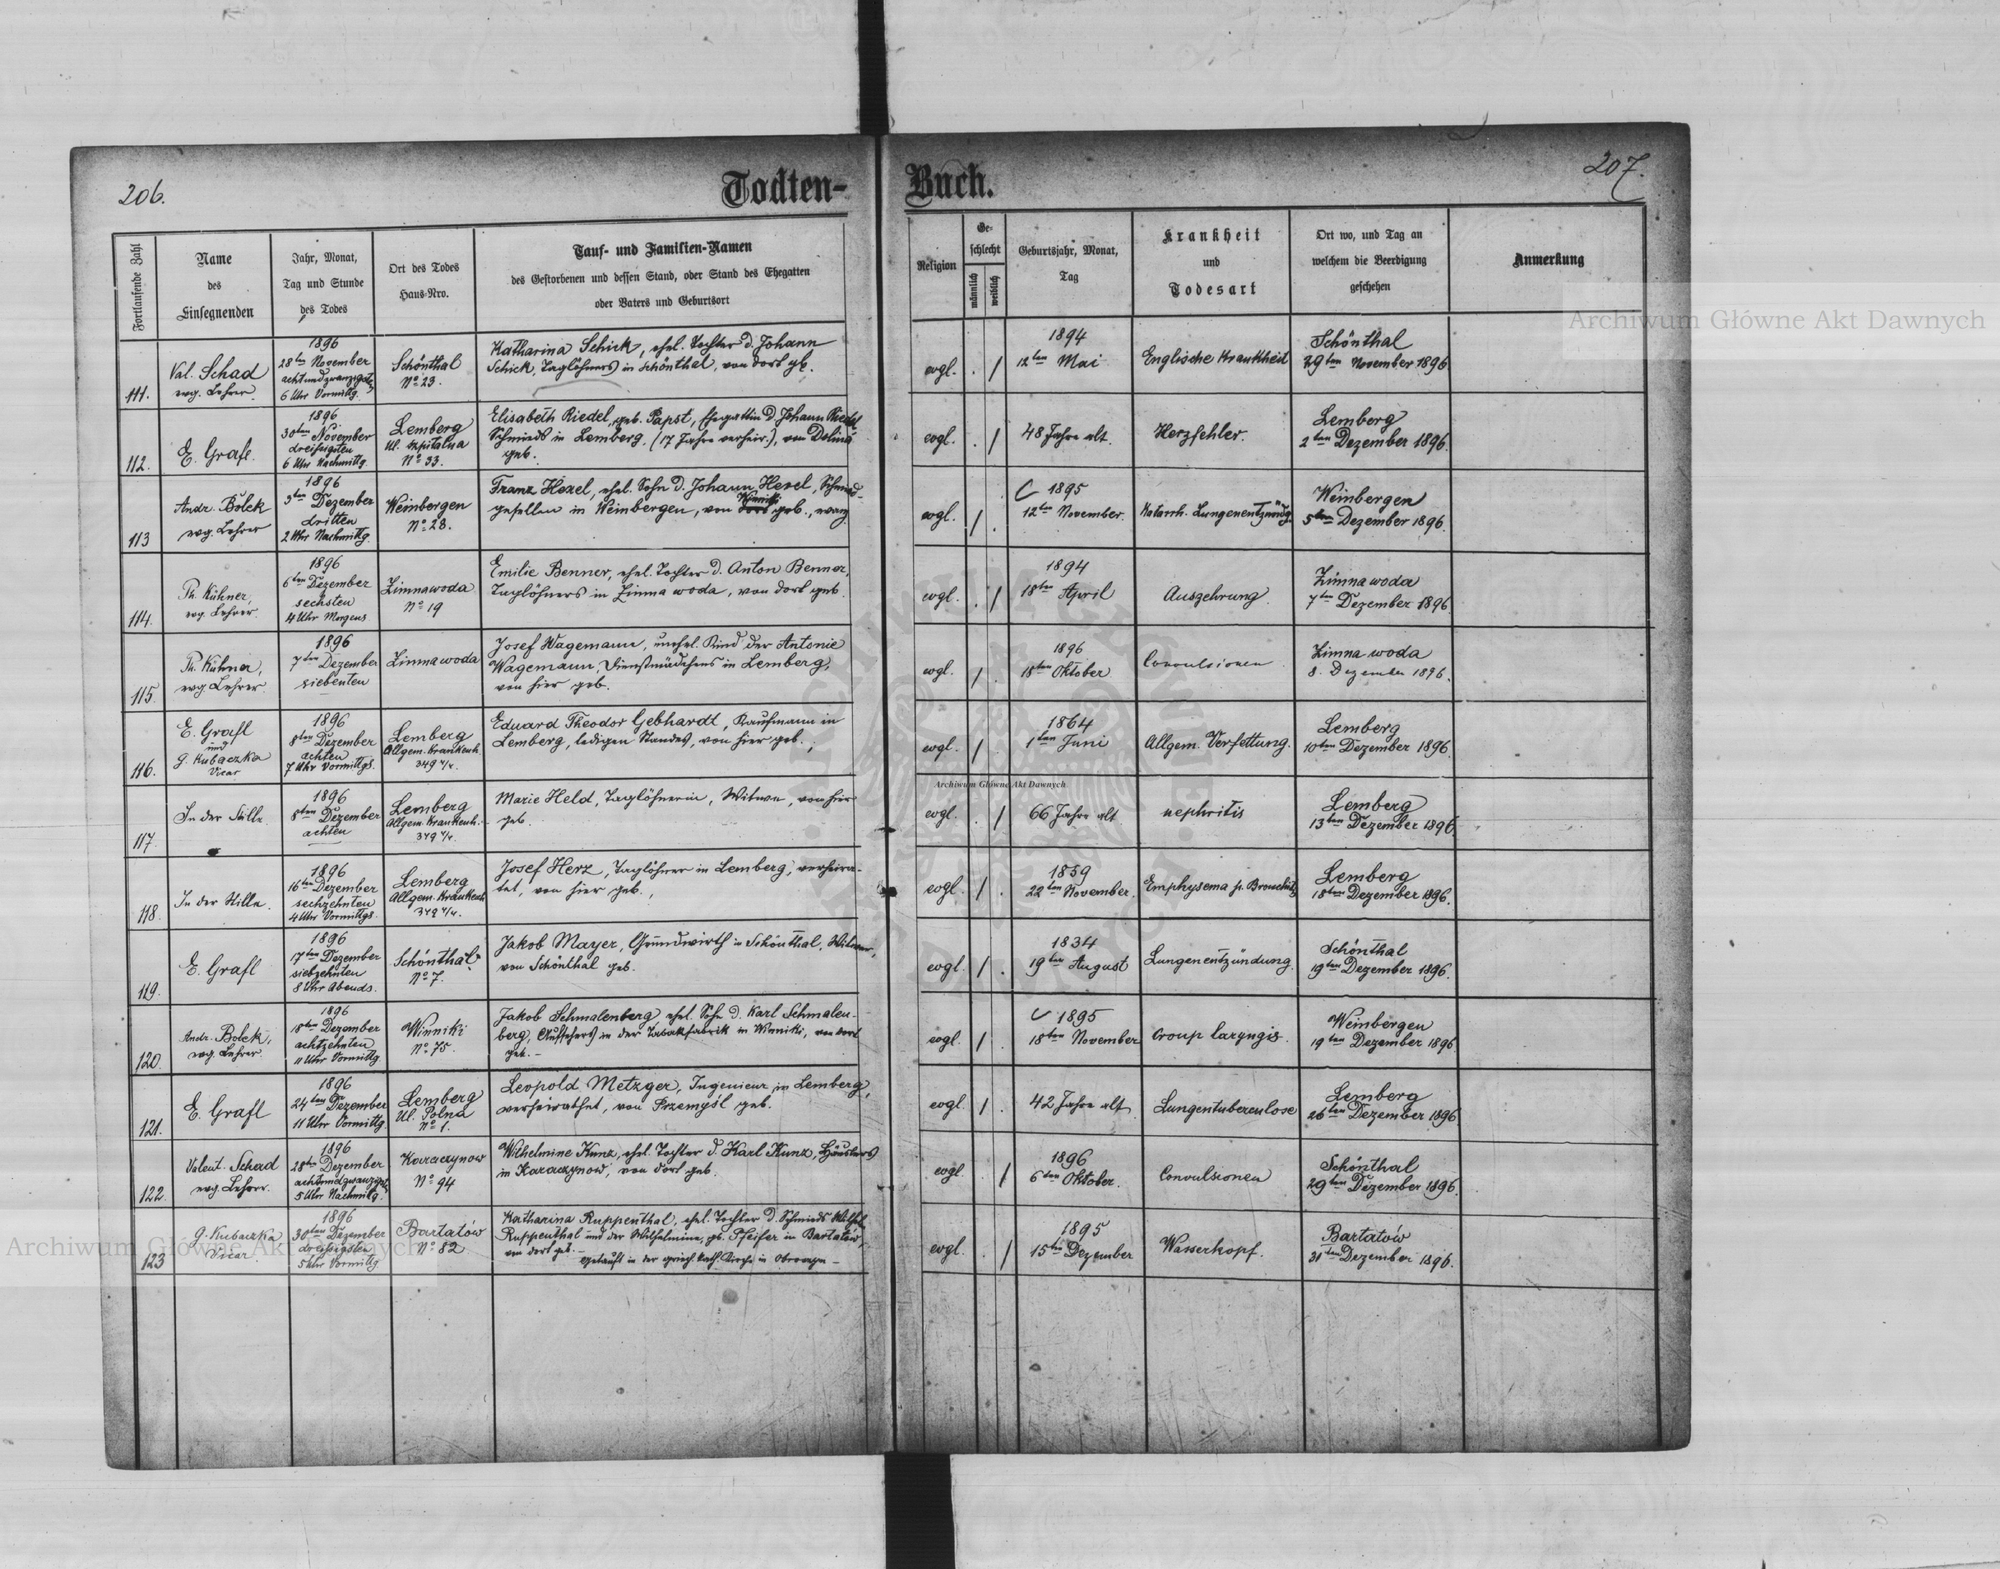 206.
Todten-
Buch.
207.
Fortlaufende Zahl
Name
des
Einsegnenden
Jahr, Monat,
Tag und Stunde
des Todes
Ort des Todes
Haus-Nro.
Tauf- und Familien-Namen
des Gestorbenen und dessen Stand, oder Stand des Ehegatten
oder Vaters und Geburtsort
Religion
Ge-
schlecht
männlich
weiblich
Geburtsjahr, Monat,
Tag
Krankheit
und
Todesart
Ort wo, und Tag an
welchem die Beerdigung
geschehen
Anmerkung
Archiwum Główne Akt Dawnych
111.
Val. Schad
evg. Lehrer.
1896
28ten November
achtundzwanzigsten
6 Uhr Vormittg.
Schönthal
No 23.
Katharina Schick, ehel. Tochter d. Johann
Schick, Taglöhners in Schönthal, von dort gb.
evgl. . /
1894
12ten Mai
Englische Krankheit
Schönthal
29ten November 1896
112.
E. Grafl.
1896
30ten November
dreissigsten
6 Uhr Nachmittg.
Lemberg
Ul. Szpitalna
No 33.
Elisabeth Riedel, geb. Papst, Ehegattin d. Johann Riedel
Schmieds in Lemberg, (17 Jahre verheir.), von Dolina
geb.
evgl. . /
48 Jahre alt.
Herzfehler.
Lemberg
2ten Dezember 1896.
113
Andr. Bolek
evg. Lehrer
1896
3ten Dezember
dritten
2 Uhr Nachmittg.
Weinbergen
No 28.
Franz Hexel, ehel. Sohn d. Johann Hexel, Schmied-
gesellen in Weinbergen, von Winniki geb., evang
evgl. / .
1895
12ten November.
Katarrh. Lungenentzündg.
Weinbergen
5ten Dezember 1896.
114.
Ph. Kühner,
evg. Lehrer.
1896
6ten Dezember
sechsten
4 Uhr Morgens
Zimnawoda
No 19
Emilie Benner, ehel. Tochter d. Anton Benner,
Taglöhners in Zimna woda, von dort geb.
evgl. . /
1894
18ten April
Auszehrung.
Zimna woda
7ten Dezember 1896.
115.
Ph. Kühner,
evg. Lehrer.
1896
7ten Dezember
siebenten
Zimna woda
Josef Wagemann, unehel. Kind der Antonie
Wagemann, Dienstmädchens in Lemberg,
von hier geb.
evgl. / .
1896
18ten Oktober
Convulsionen
Zimna woda
8. Dezember 1896.
116.
E. Grafl
und
G. Kubaczka
Vicar
1896
8ten Dezember
achten
7 Uhr Vormittgs.
Lemberg
Allgem. Krankenh.
349 4/4.
Eduard Theodor Gebhardt, Kaufmann in
Lemberg, ledigen Standes, von hier geb.,
evgl. / .
1864
1ten Juni
Allgem. Verfettung.
Lemberg
10ten Dezember 1896
Archiwum Główne Akt Dawnych
117.
In der Stille
1896
8ten Dezember
achten
Lemberg
Allgem. Krankenh.
349 4/4.
Marie Held, Taglöhnerin, Witwe, von hier
geb.
evgl. . /
66 Jahre alt
nephritis
Lemberg
13ten Dezember 1896.
118.
In der Stille.
1896
16ten Dezember
sechzehnten
4 Uhr Vormittgs.
Lemberg
Allgem. Krankenh
349 4/4.
Josef Herz, Taglöhner in Lemberg, verheira-
tet, von hier geb.,
evgl. / .
1839
22ten November.
Emphysema p. Bronchitis
Lemberg
18ten Dezember 1896.
119.
E. Grafl
1896
17ten Dezember
siebzehnten
8 Uhr Abends.
Schönthal
No 7.
Jakob Mayer, Grundwirth in Schönthal, Witwer,
von Schönthal geb.
evgl. / .
1834
19ten August
Lungenentzündung.
Schönthal
19ten Dezember 1896.
120.
Andr. Bolek,
evg. Lehrer.
1896
18ten Dezember
achtzehnten
11 Uhr Vormittg.
Winniki
No. 75.
Jakob Schmalenberg, ehel. Sohn d. Karl Schmalen-
berg, Aufsehers in der Tabakfabrik in Winniki, von dort
geb. -
evgl. / .
1895
18ten November
Croup laryngis.
Weinbergen
19ten Dezember 1896
121.
E. Grafl
1896
24ten Dezember
11 Uhr Vormittg.
Lemberg
Ul. Polna
No 1.
Leopold Metzger, Ingenieur in Lemberg,
verheirathet, von Przemyśl geb.
evgl. / .
42 Jahre alt
Lungentuberculose
Lemberg
26ten Dezember 1896
122.
Valent. Schad
evg. Lehrer.
1896
28ten Dezember
achtundzwanzigsten
5 Uhr Nachmittg.
Karaczynow
No 94
Wilhelmine Kunz, ehel. Tochter d. Karl Kunz, Häuslers
in Karaczynow, von dort geb.
evgl. /
1896
6ten Oktober.
Convulsionen
Schönthal
29ten Dezember 1896.
123
G. Kubaczka
Vicar
1896
30sten Dezember
dreissigsten
5 Uhr Vormittg
Bartatów
No 82
Katharina Ruppenthal, ehel. Tochter d. Schmieds Wilhelm
Ruppenthal und der Wilhelmine, gb. Pfeifer in Bartatów,
von dort geb. -
getauft in der griech. kath. Kirche in
evgl. . /
1895
15ten Dezember
Wasserkopf.
Bartatów
31ten Dezember 1896.
Archiwum Główne Akt Dawnych